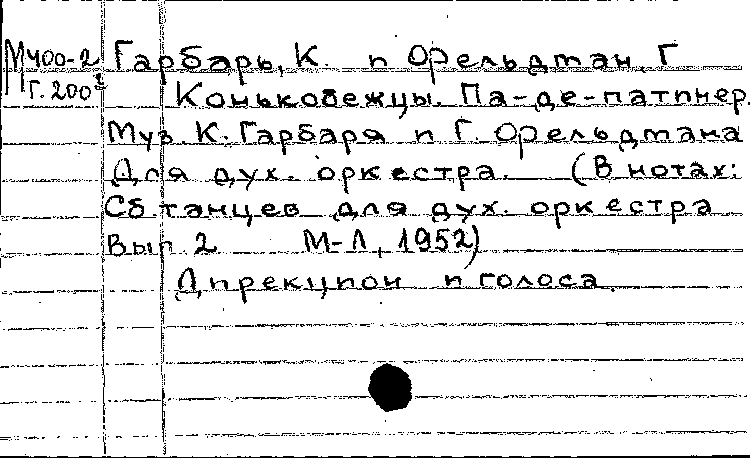 М400-2 Гарбарь, К. и Орельдман, Г
Г. 200³ Конькобежцы. Па-де-патинер.
Муз. К. Гарбаря и Г. Орельдмана
Для дух. оркестра. (В нотах:
Сб. танцев для дух. оркестра
Вып. 2 М-Л, 1952)
Дирекцион и голоса.